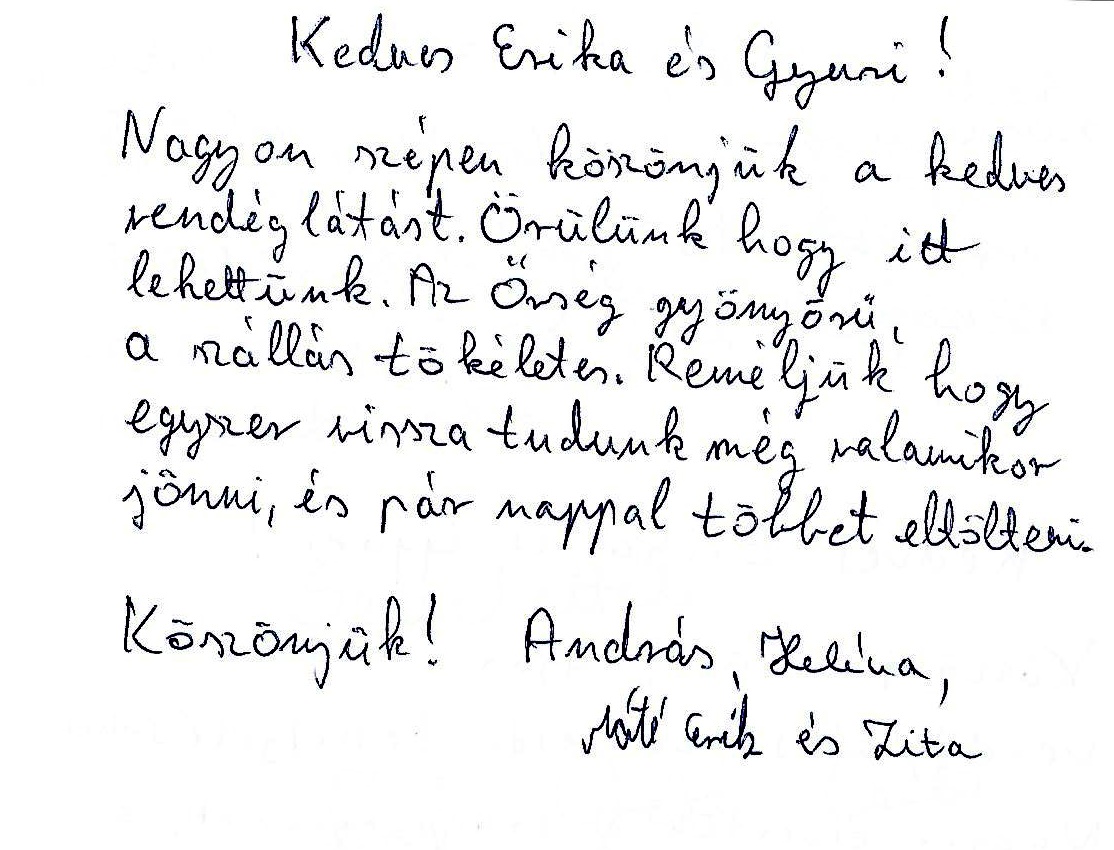 Kedves Erika és Gyuri!
Nagyon szépen köszönjük a kedves
rendéglátást. Örülünk hogy itt
lehettünk. Az Őrség gyönyörű,
a szállás tökéletes. Reméljük hogy
egyszer vissza tudunk még valamikor
jönni, és pár nappal többet eltölteni.
Köszönjük! András, Heléna,
Máté Erik és Zita